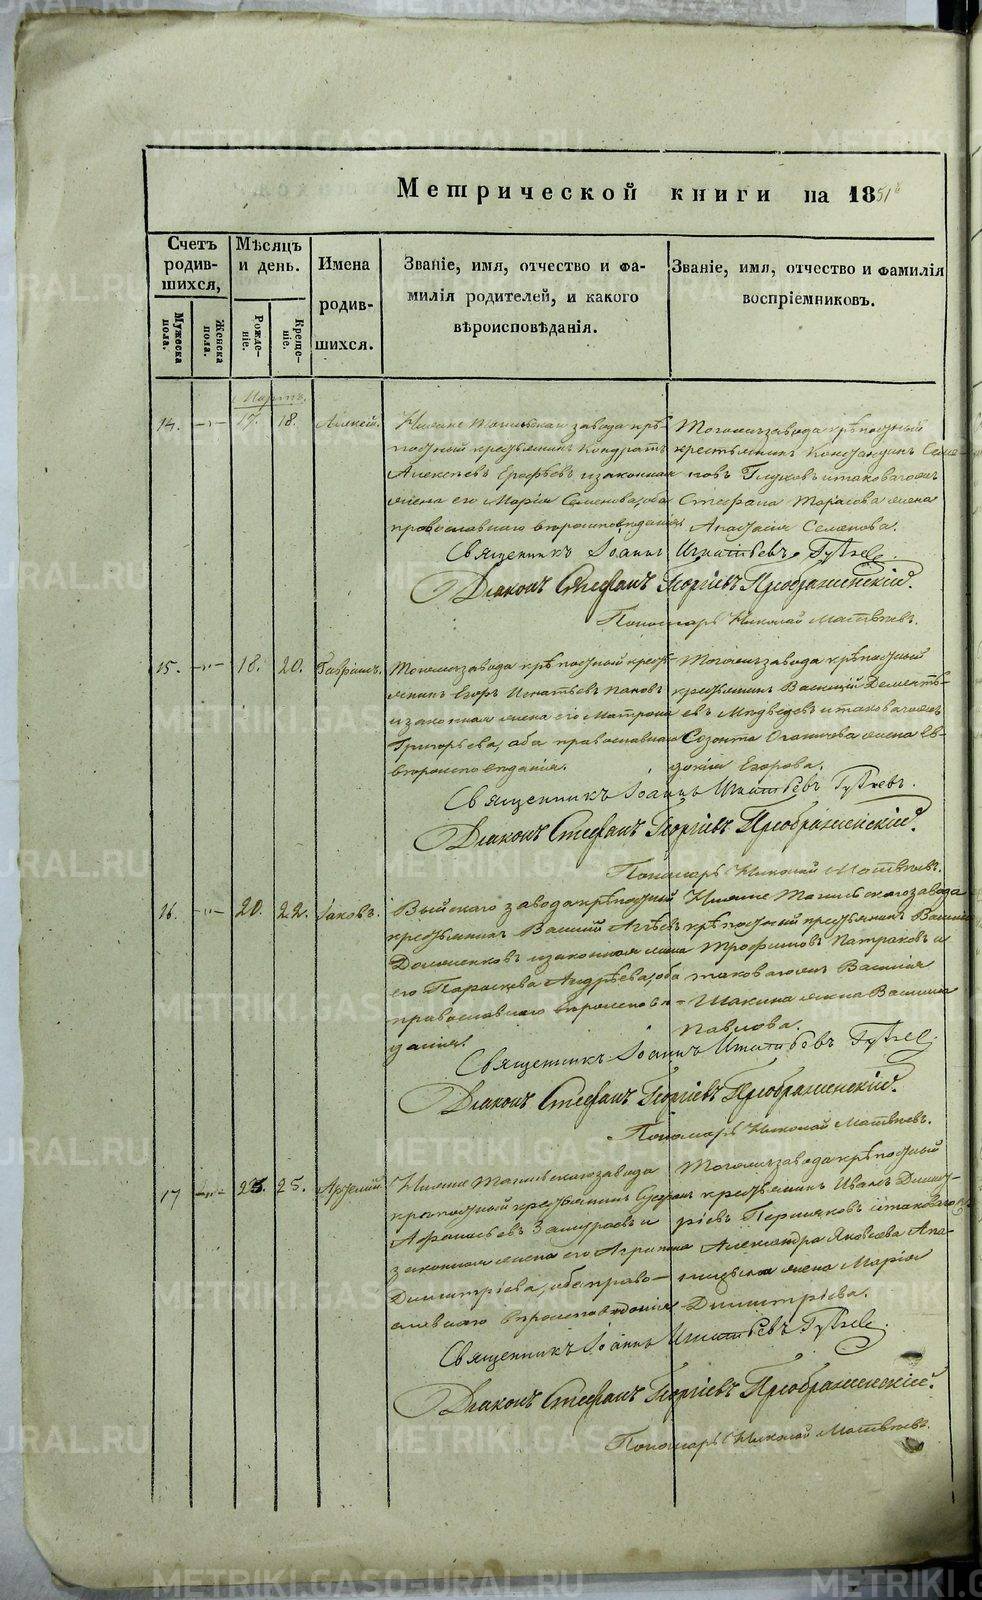 Метрической книги на 1851й
Счетъ родив-шихся,
Мужеска пола.
Женска пола.
Мѣсяцъ и день.
Рожде-ніе.
Креще-ніе.
Имена родив-шихся.
Званіе, имя, отчество и фа-
милія родителей, и какого
вѣроисповѣданія.
Званіе, имя, отчество и фамилія
воспріемниковъ.
Мартъ
14. 17. 18. Алексѣй.
Нижне Тагильскаго завода крѣ-
постный крестьянинъ Кондратъ
Алексѣевъ Ерофѣевъ изаконная
жена его Марія Семенова, оба
православнаго вѣроисповѣданія.
Тогожъ завода крѣпостный
крестьянинъ Констандинъ Семе-
новъ Глуховъ итаковагожъ
Стефана Тарасова жена
Анастасія Семенова.
Священникъ Іоаннъ Игнатьевъ
Діаконъ Стефанъ Георгіевъ Преображенскій.
Пономарь Николай Матвѣевъ.
15. 18. 20. Гавріилъ.
Тогожъ завода крѣпостный крест-
янинъ Егоръ Игнатьевъ Пановъ
изаконная жена его Матрона
Григорьева, оба православнаго
вѣроисповѣданія.
Тогожъ завода крѣпостный
крестьянинъ Василій Дементь-
евъ Медведевъ итаковагожъ
Созонта жена Ев-
докія Егорова.
Священникъ Іоаннъ Игнатьевъ
Діаконъ Стефанъ Георгіевъ Преображенскій.
Пономарь Николай Матвѣевъ.
16. 20. 22. Іаковъ.
Выйскаго завода крѣпостный
крестьянинъ Василій
изаконная жена
его Параскева Андрѣева, оба
православнаго вѣроисповѣ-
данія.
Нижне Тагильскаго завода
крѣпостный крестьянинъ Василій
Трофимовъ Патраковъ и
таковагожъ Василія
Шакина жена Василиса
Павлова.
Священникъ Іоаннъ Игнатьевъ
Діаконъ Стефанъ Георгіевъ Преображенскій.
Пономарь Николай Матвѣевъ.
17 25. Арсеній
Нижне Тагильскаго завода
крѣпостный крестьянинъ
Афанасьевъ и
законная жена его Агрипина
Димитріева, оба право-
славнаго вѣроисповѣданія
Тогожъ завода крѣпостный
крестьянинъ Иванъ Димит-
ріевъ Пермяковъ итаковагожъ
Александра Яковлева
жена Марія
Димитріева.
Священникъ Іоаннъ Игнатьевъ
Діаконъ Стефанъ Георгіевъ Преображенскій.
Пономарь Николай Матвѣевъ.
METRIKI.GASO-URAL.RU